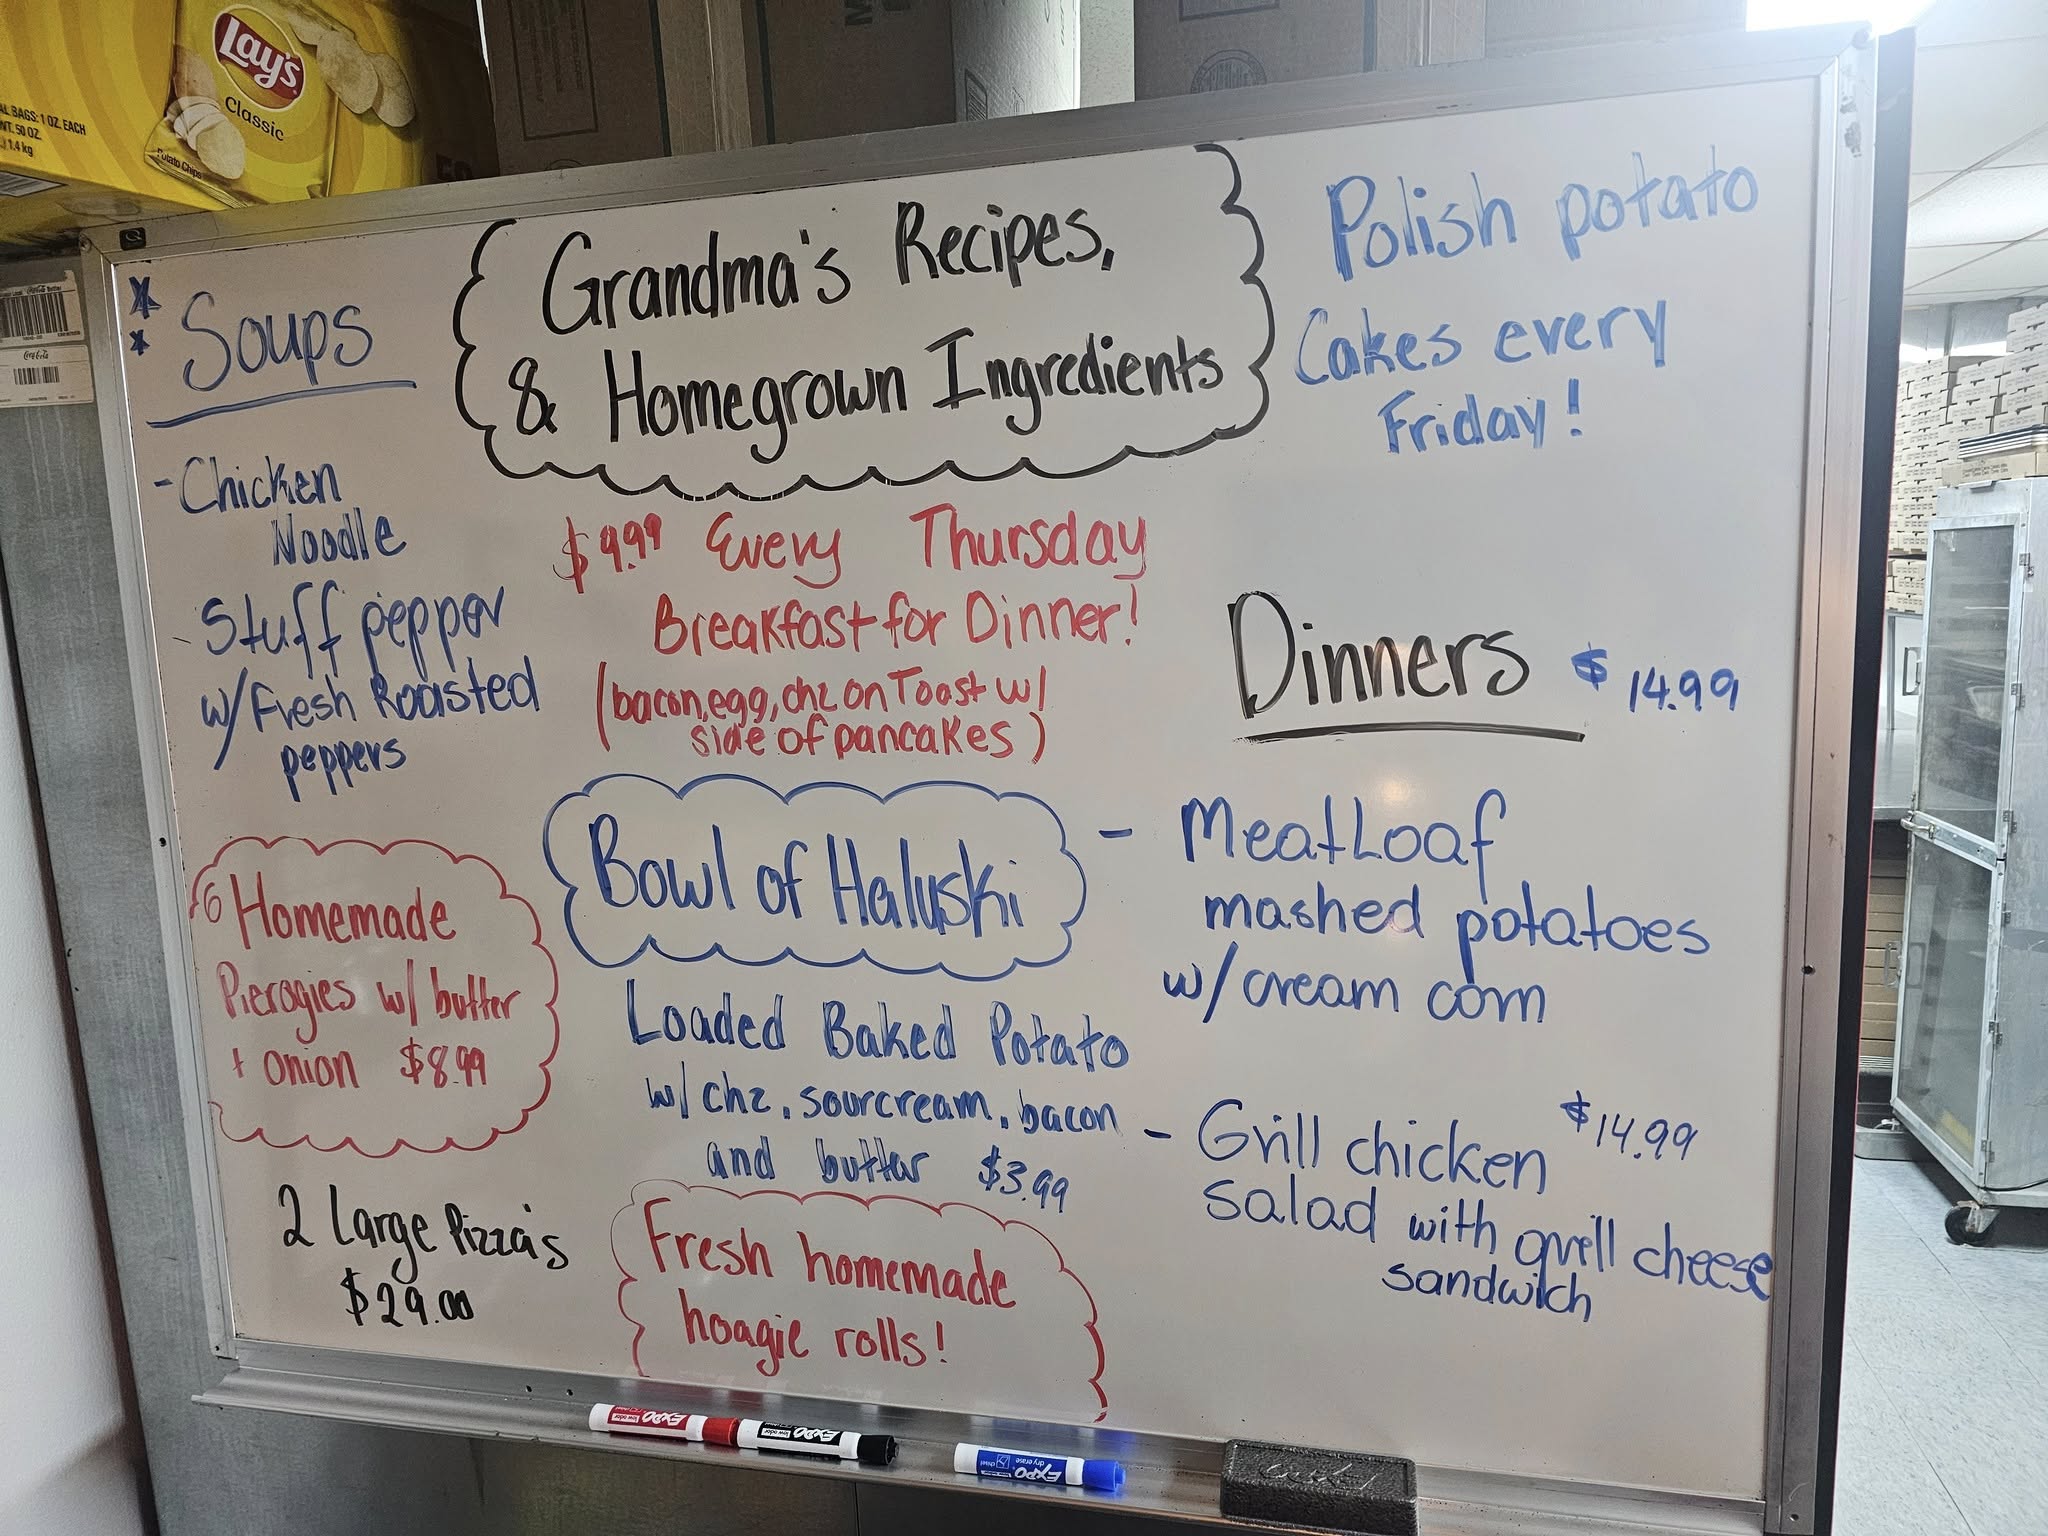 Lay's
Classic
Potato Chips
AL BAGS: 1 OZ. EACH
WT. 50 OZ.
1.4 kg
Grandma's Recipes,
& Homegrown Ingredients
Polish potato
Cakes every
Friday!
Soups
- Chicken
Noodle
- Stuff pepper
w/Fresh Roasted
peppers
$9.99 Every Thursday
Breakfast for Dinner!
(bacon, egg, chz on Toast w/
side of pancakes)
Dinners $14.99
- MeatLoaf
mashed potatoes
w/cream corn
Bowl of Haluski
6 Homemade
Pierogies w/ butter
+ onion $8.99
Loaded Baked Potato
w/ chz, sourcream, bacon
and butter $3.99
- Grill chicken $14.99
salad with grill cheese
sandwich
2 Large Pizza's
$29.00
Fresh homemade
hoagie rolls!
EXPO
low odor
EXPO
low odor
EXPO
dry erase
chisel
Coca-Cola